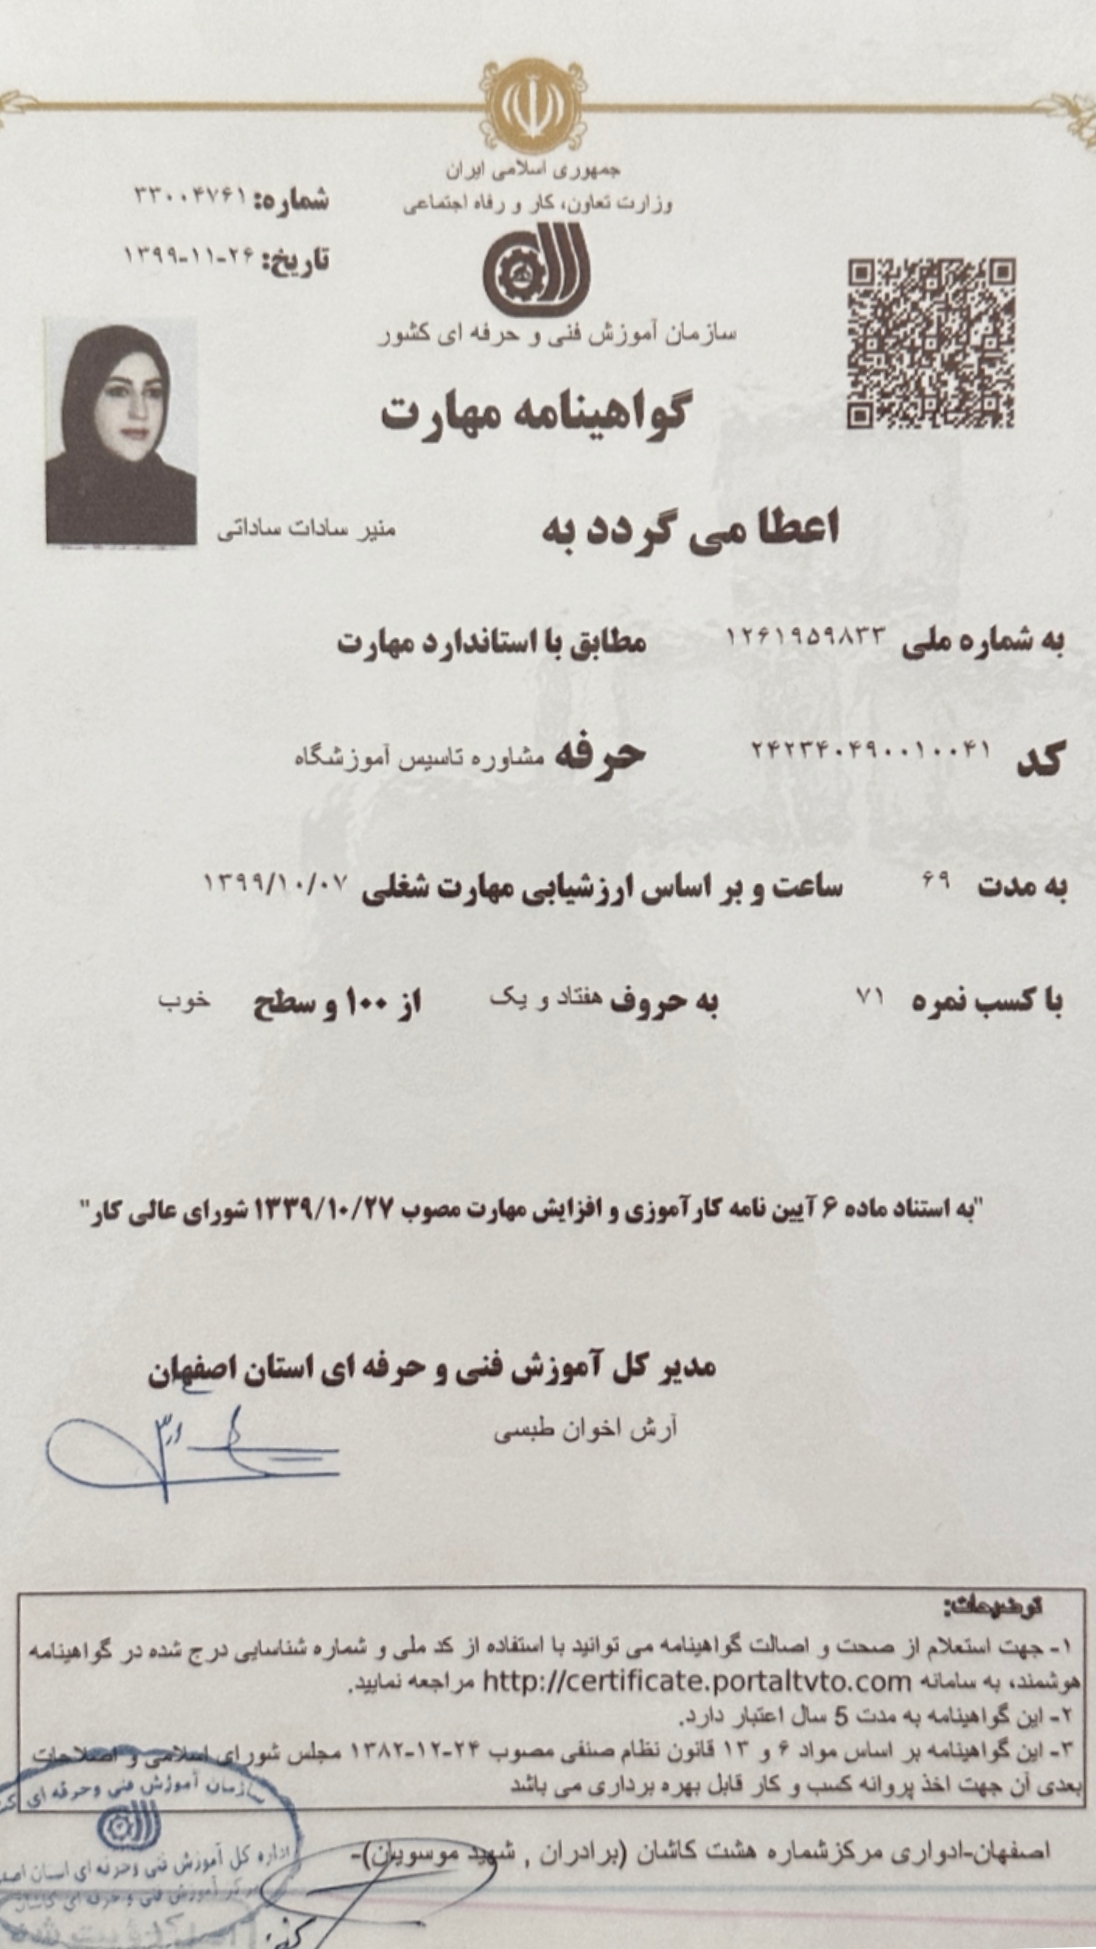 جمهوری اسلامی ایران
وزارت تعاون، کار و رفاه اجتماعی
شماره: ۳۳۰۰۴۷۶۱
تاریخ: ۱۳۹۹-۱۱-۲۶
سازمان آموزش فنی و حرفه ای کشور
گواهینامه مهارت
اعطا می گردد به منیر سادات ساداتی
به شماره ملی ۱۲۶۱۹۵۹۸۳۳ مطابق با استاندارد مهارت
کد ۲۴۲۳۴۰۴۹۰۰۱۰۰۴۱ حرفه مشاوره تاسیس آموزشگاه
به مدت ۶۹ ساعت و بر اساس ارزشیابی مهارت شغلی ۱۳۹۹/۱۰/۰۷
با کسب نمره ۷۱ به حروف هفتاد و یک از ۱۰۰ و سطح خوب
"به استناد ماده ۶ آیین نامه کارآموزی و افزایش مهارت مصوب ۱۳۳۹/۱۰/۲۷ شورای عالی کار"
مدیر کل آموزش فنی و حرفه ای استان اصفهان
آرش اخوان طبسی
توضیحات:
۱- جهت استعلام از صحت و اصالت گواهینامه می توانید با استفاده از کد ملی و شماره شناسایی درج شده در گواهینامه
هوشمند، به سامانه http://certificate.portaltvto.com مراجعه نمایید.
۲- این گواهینامه به مدت 5 سال اعتبار دارد.
۳- این گواهینامه بر اساس مواد ۶ و ۱۳ قانون نظام صنفی مصوب ۲۴-۱۲-۱۳۸۲ مجلس شورای اسلامی و اصلاحات
بعدی آن جهت اخذ پروانه کسب و کار قابل بهره برداری می باشد
سازمان آموزش فنی وحرفه ای
اداره کل آموزش فنی وحرفه ای استان
مرکز آموزش فنی و حرفه ای کاشان
اصفهان-ادواری مرکزشماره هشت کاشان (برادران , شهید موسویان)-